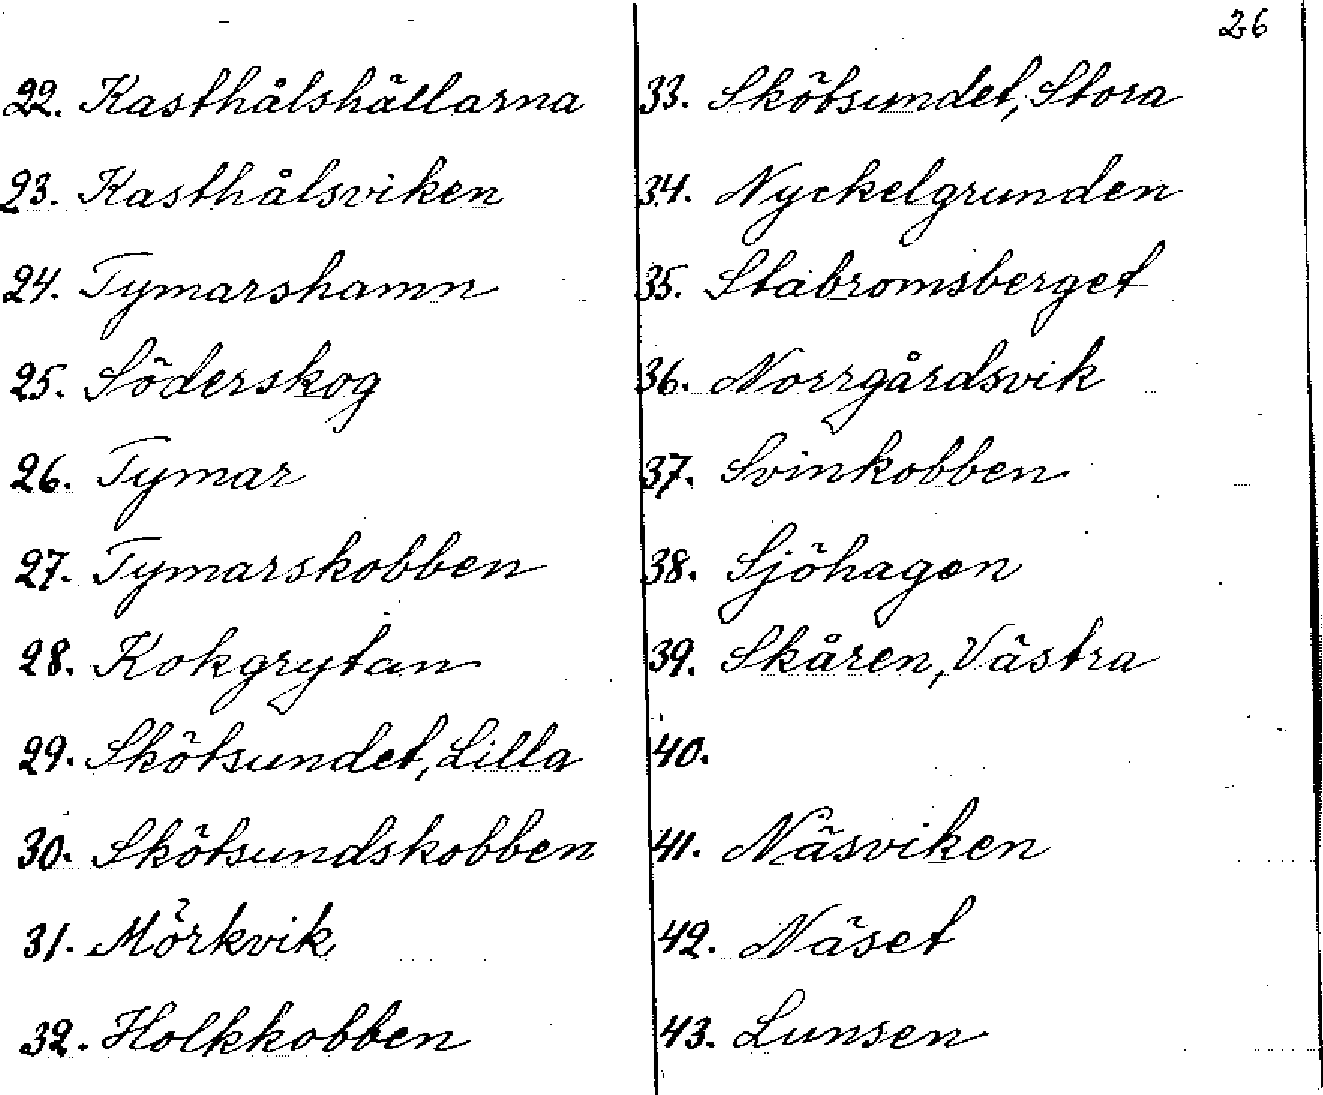 26
22. Kasthålshällarna
23. Kasthålsviken
24. Tymarshamn
25. Söderskog
26. Tymar
27. Tymarskobben
28. Kokgrytan
29. Skötsundet, Lilla
30. Skötsundskobben
31. Mörkvik
32. Holkkobben
33. Skötsundet, Stora
34. Nyckelgrunden
35. Stabromsberget
36. Norrgårdsvik
37. Svinkobben
38. Sjöhagen
39. Skåren, Västra
40.
41. Näsviken
42. Näset
43. Lunsen